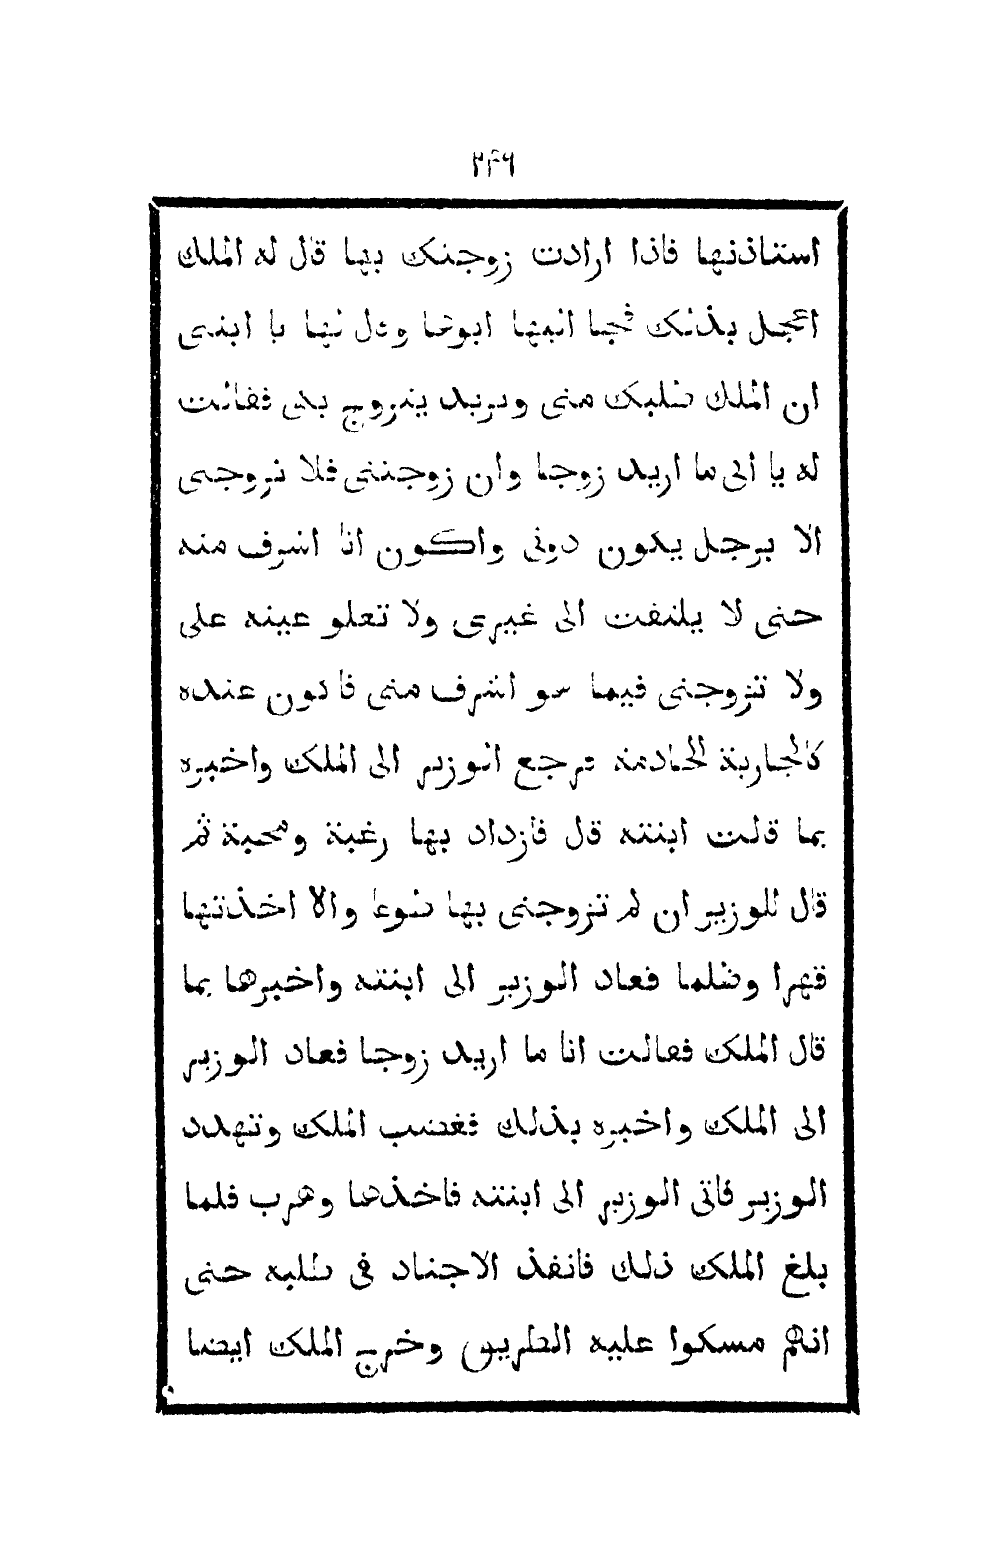 ٢٤٦
استاذنها فاذا ارادت زوجتك بها قال له الملك
اعجل بذلك فجا اليها ابوها وقال لها يا ابنتى
ان الملك طلبك منى ويريد يتزوج بكى فقالت
له يا ابى ما اريد زوجا وان زوجتنى فلا تزوجنى
الا برجل يكون دونى واكون انا اشرف منه
حتى لا يلتفت الى غيرى ولا تعلو عينه على
ولا تزوجنى فيما هو اشرف منى فاكون عنده
كالجارية الخادمة فرجع الوزير الى الملك واخبره
بما قالت ابنته قال فازداد بها رغبة ومحبة ثم
قال للوزير ان لم تزوجنى بها طوعا والا اخذتها
قهرا وظلما فعاد الوزير الى ابنته واخبرها بما
قال الملك فقالت انا ما اريد زوجا فعاد الوزير
الى الملك واخبره بذلك فغضب الملك وتهدد
الوزير فاتى الوزير الى ابنته فاخذها وهرب فلما
بلغ الملك ذلك فانفذ الاجناد فى طلبه حتى
انهم مسكوا عليه الطريق وخرج الملك ايضا